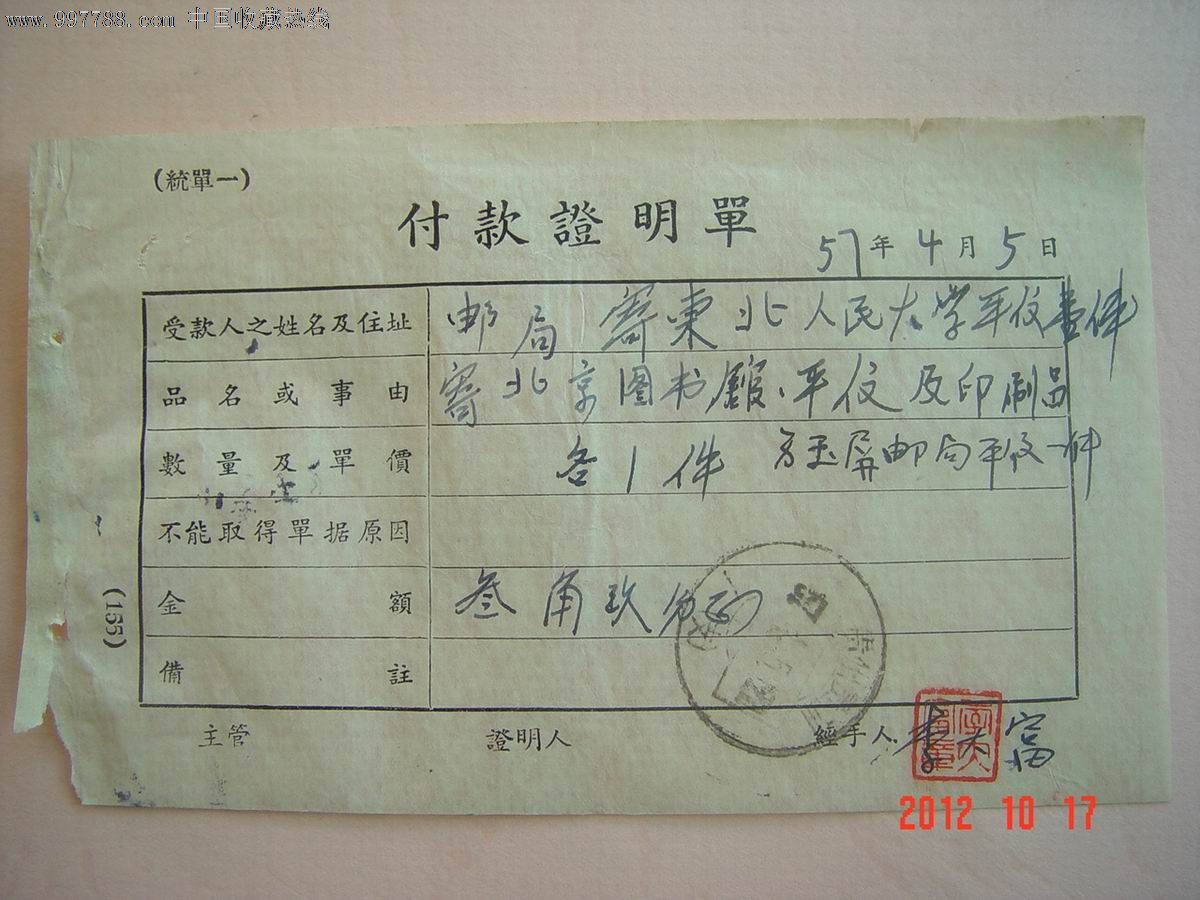 www.997788.com 中国收藏热线
(統單一)
付款證明單
57年4月5日
受款人之姓名及住址 邮局 寄東北人民大学平仪壹件
品名或事由 寄北京图书舘、平仪及印刷品
數量及單價 各1件 玉屏邮局平仪一件
不能取得單据原因
金額 叁角玖分正
備註
(155)
主管 證明人 經手人 李大富
2012 10 17